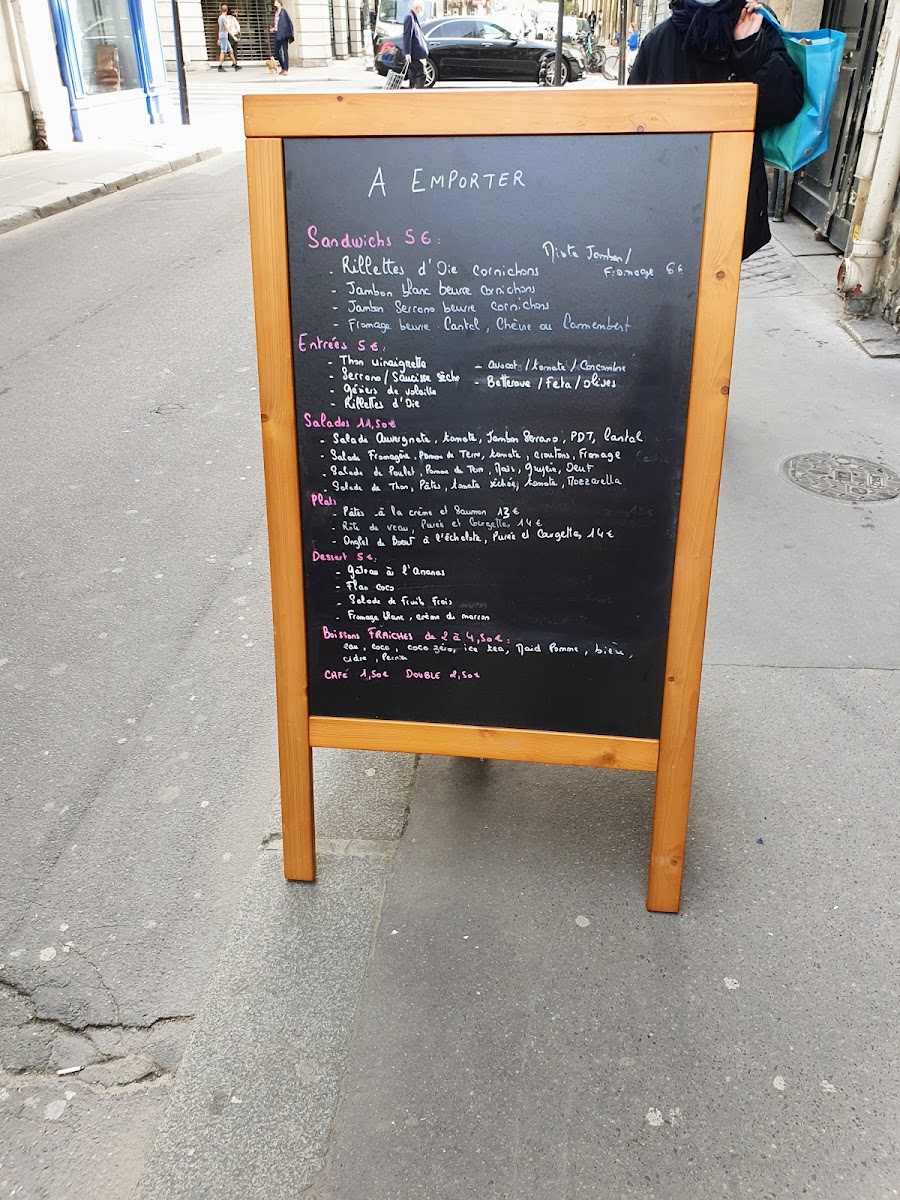 A EMPORTER
Sandwichs 5€:
- Rillettes d'Oie cornichons
Mixte Jambon/
Fromage 6€
- Jambon blanc beurre cornichons
- Jambon Serrano beurre cornichons
- Fromage beurre : Cantal, Chèvre ou Camembert
Entrées 5€:
- Thon vinaigrette
- Serrano/Saucisse sèche
- Gésiers de volaille
- Rillettes d'Oie
- Avocat/tomate/Concombre
- Betterave/Feta/olives
Salades 11,50€
- Salade Auvergnate, tomate, Jambon Serrano, PDT, Cantal
- Salade Fromagère, Pomme de Terre, tomate, croutons, Fromage
- Salade de Poulet, Pomme de Terre, Maïs, Gruyère, Oeuf
- Salade de Thon, Pâtes, tomate séchée, tomate, Mozzarella
Plats
- Pâtes à la crème et Saumon 13€
- Rôti de veau, Purée et Courgettes 14€
- Onglet de Boeuf à l'échalote, Purée et Courgettes 14€
Dessert 5€:
- Gâteau à l'Ananas
- Flan coco
- Salade de Fruits Frais
- Fromage blanc, crème de marron
Boissons FRAÎCHES de 2 à 4,50€:
eau, coca, coca zéro, ice tea, Maid Pomme, bière,
cidre, Perrier
CAFÉ 1,50€ DOUBLE 2,50€